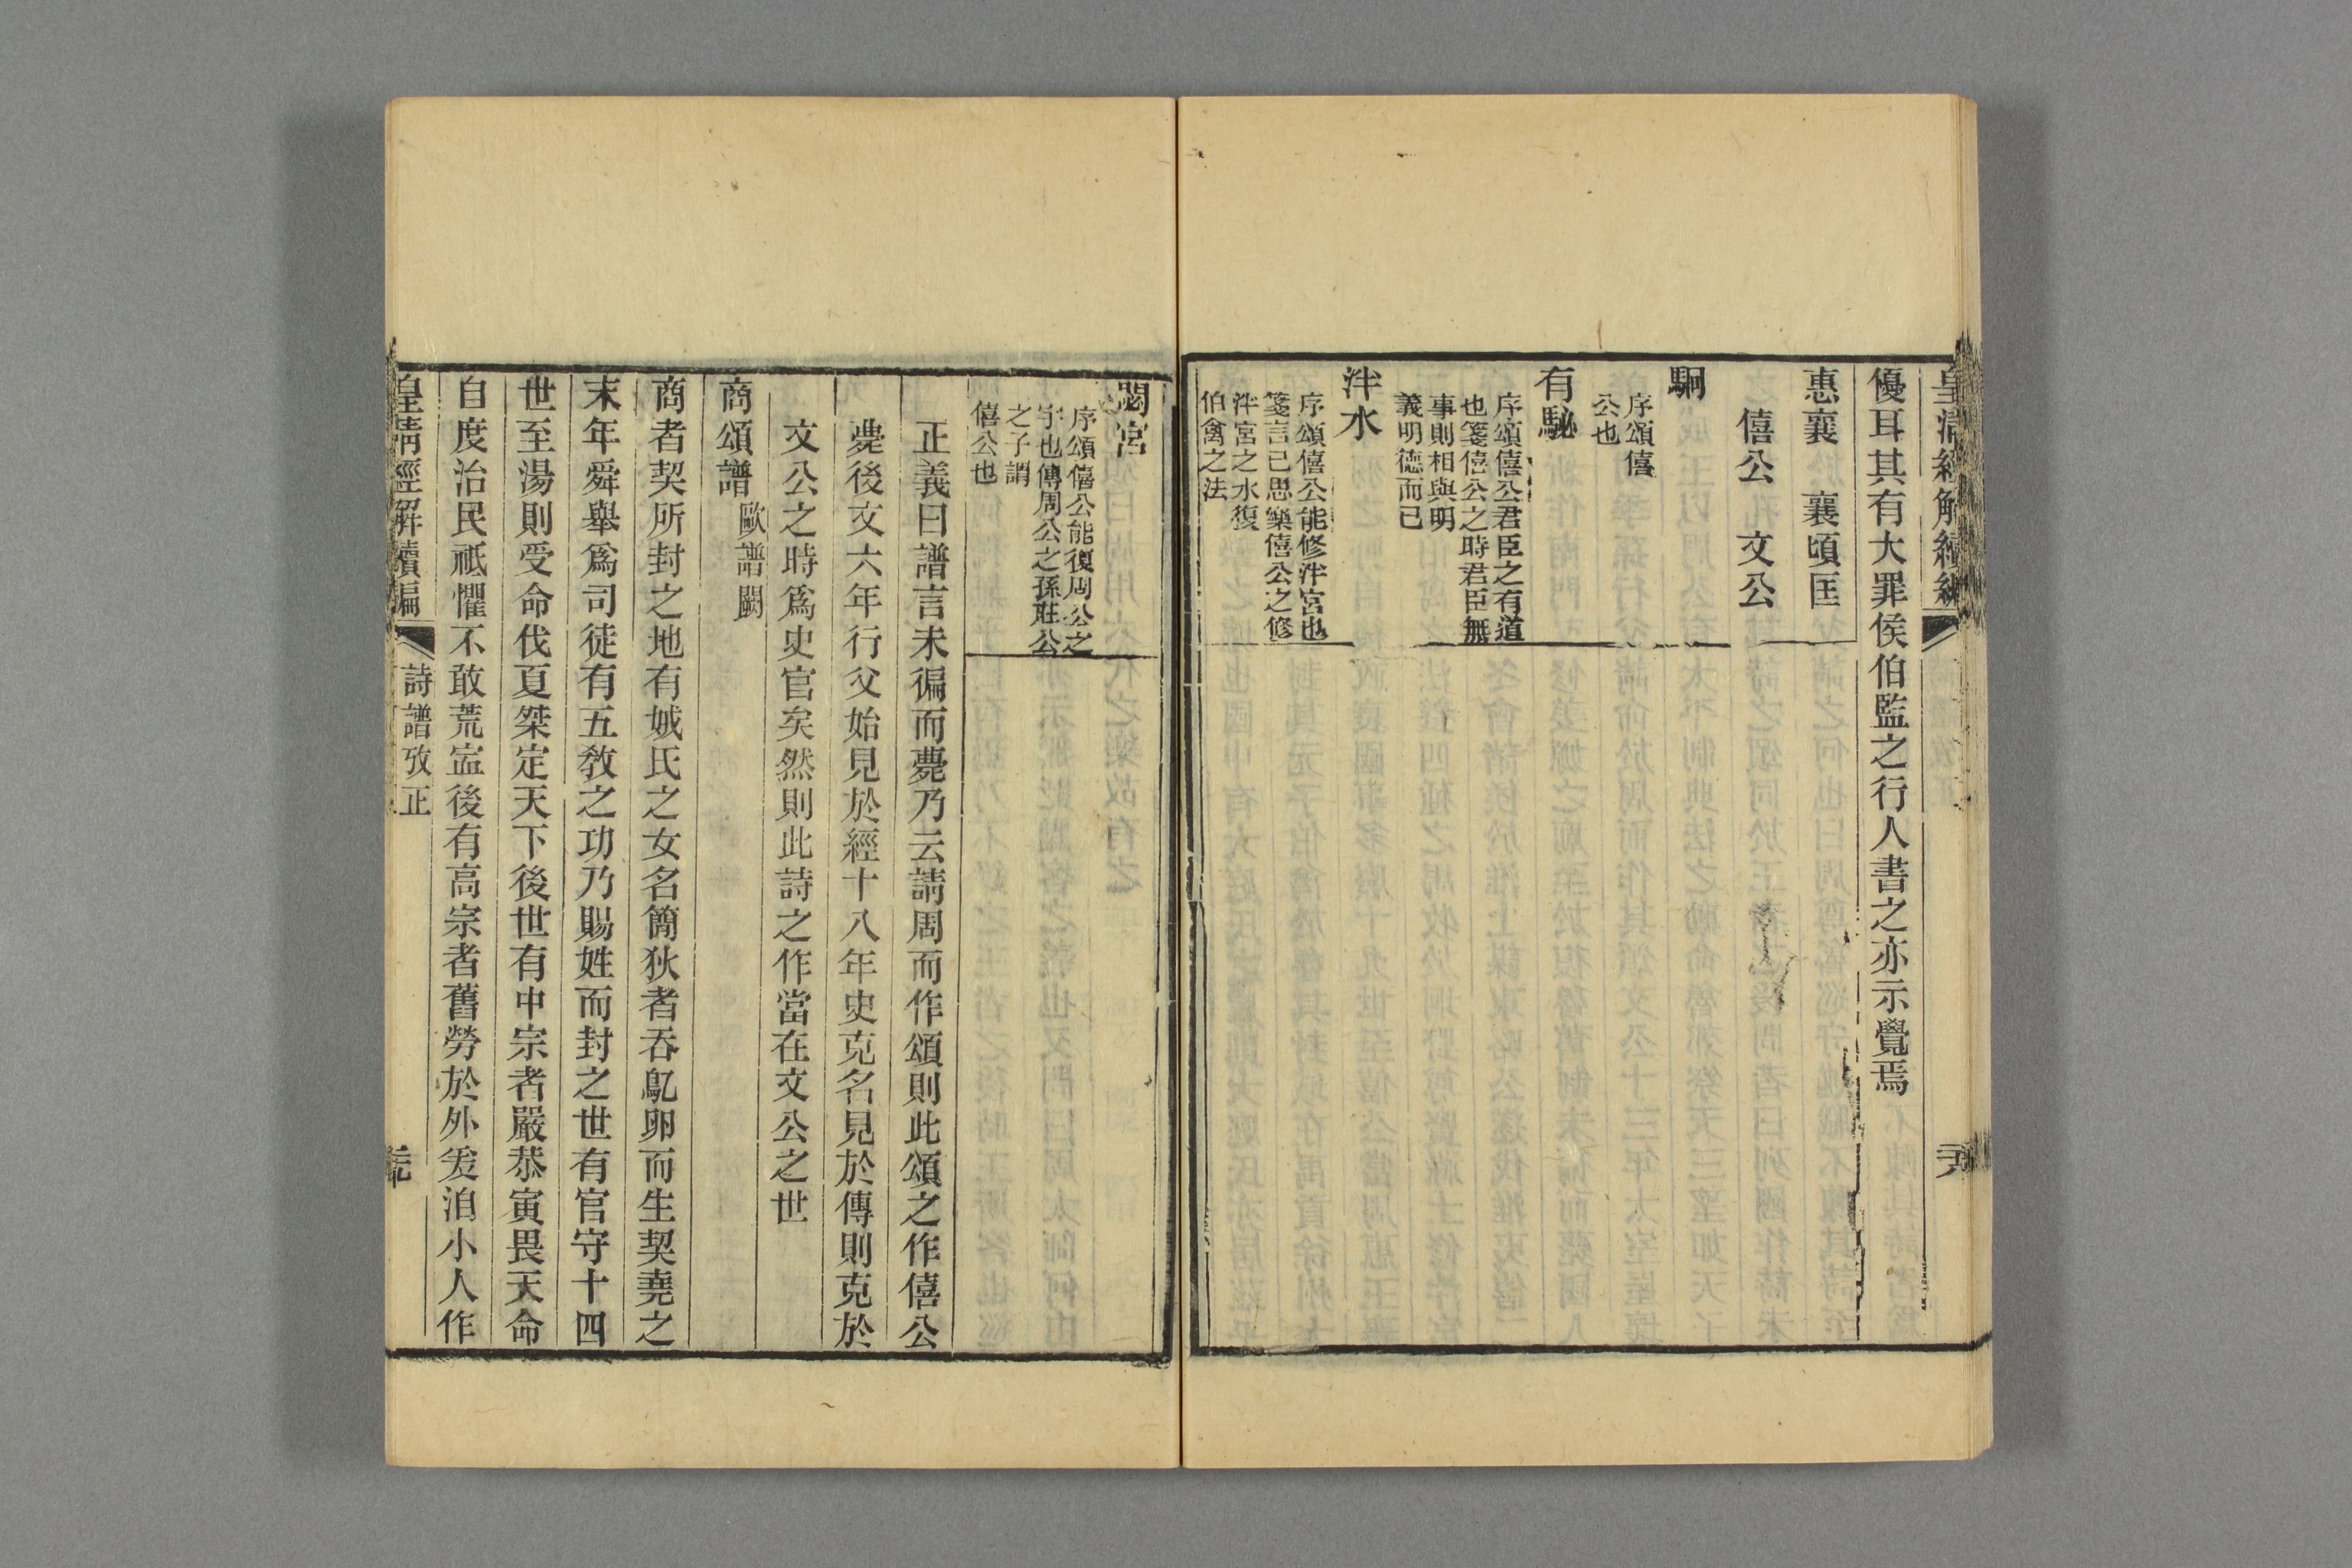 皇清經解續編
優耳其有大罪侯伯監之行人書之亦示覺焉
惠襄　襄頃匡
僖公　文公
駉
序頌僖
公也
有駜
序頌僖公君臣之有道
也箋僖公之時君臣無
事則相與明
義明德而已
泮水
序頌僖公能修泮宮也
箋言己思樂僖公之修
泮宮之水復
伯禽之法
閟宮
序頌僖公能復周公之
宇也傳周公之孫莊公
之子謂
僖公也
正義曰譜言未徧而薨乃云請周而作頌則此頌之作僖公
薨後文六年行父始見於經十八年史克名見於傳則克於
文公之時爲史官矣然則此詩之作當在文公之世
商頌譜 歐譜闕
商者契所封之地有娀氏之女名簡狄者吞鳦卵而生契堯之
末年舜舉爲司徒有五敎之功乃賜姓而封之世有官守十四
世至湯則受命伐夏桀定天下後世有中宗者嚴恭寅畏天命
自度治民祗懼不敢荒寍後有高宗者舊勞於外爰洎小人作
皇清經解續編　詩譜攷正